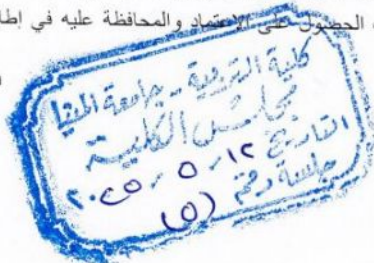 الحصول على الاعتماد والمحافظة عليه في إطا
كلية التربية - جامعة المنيا
مجلس الكلية
التاريخ ١٢ / ٥ / ٢٠٢٥
جلسة رقم (٥)